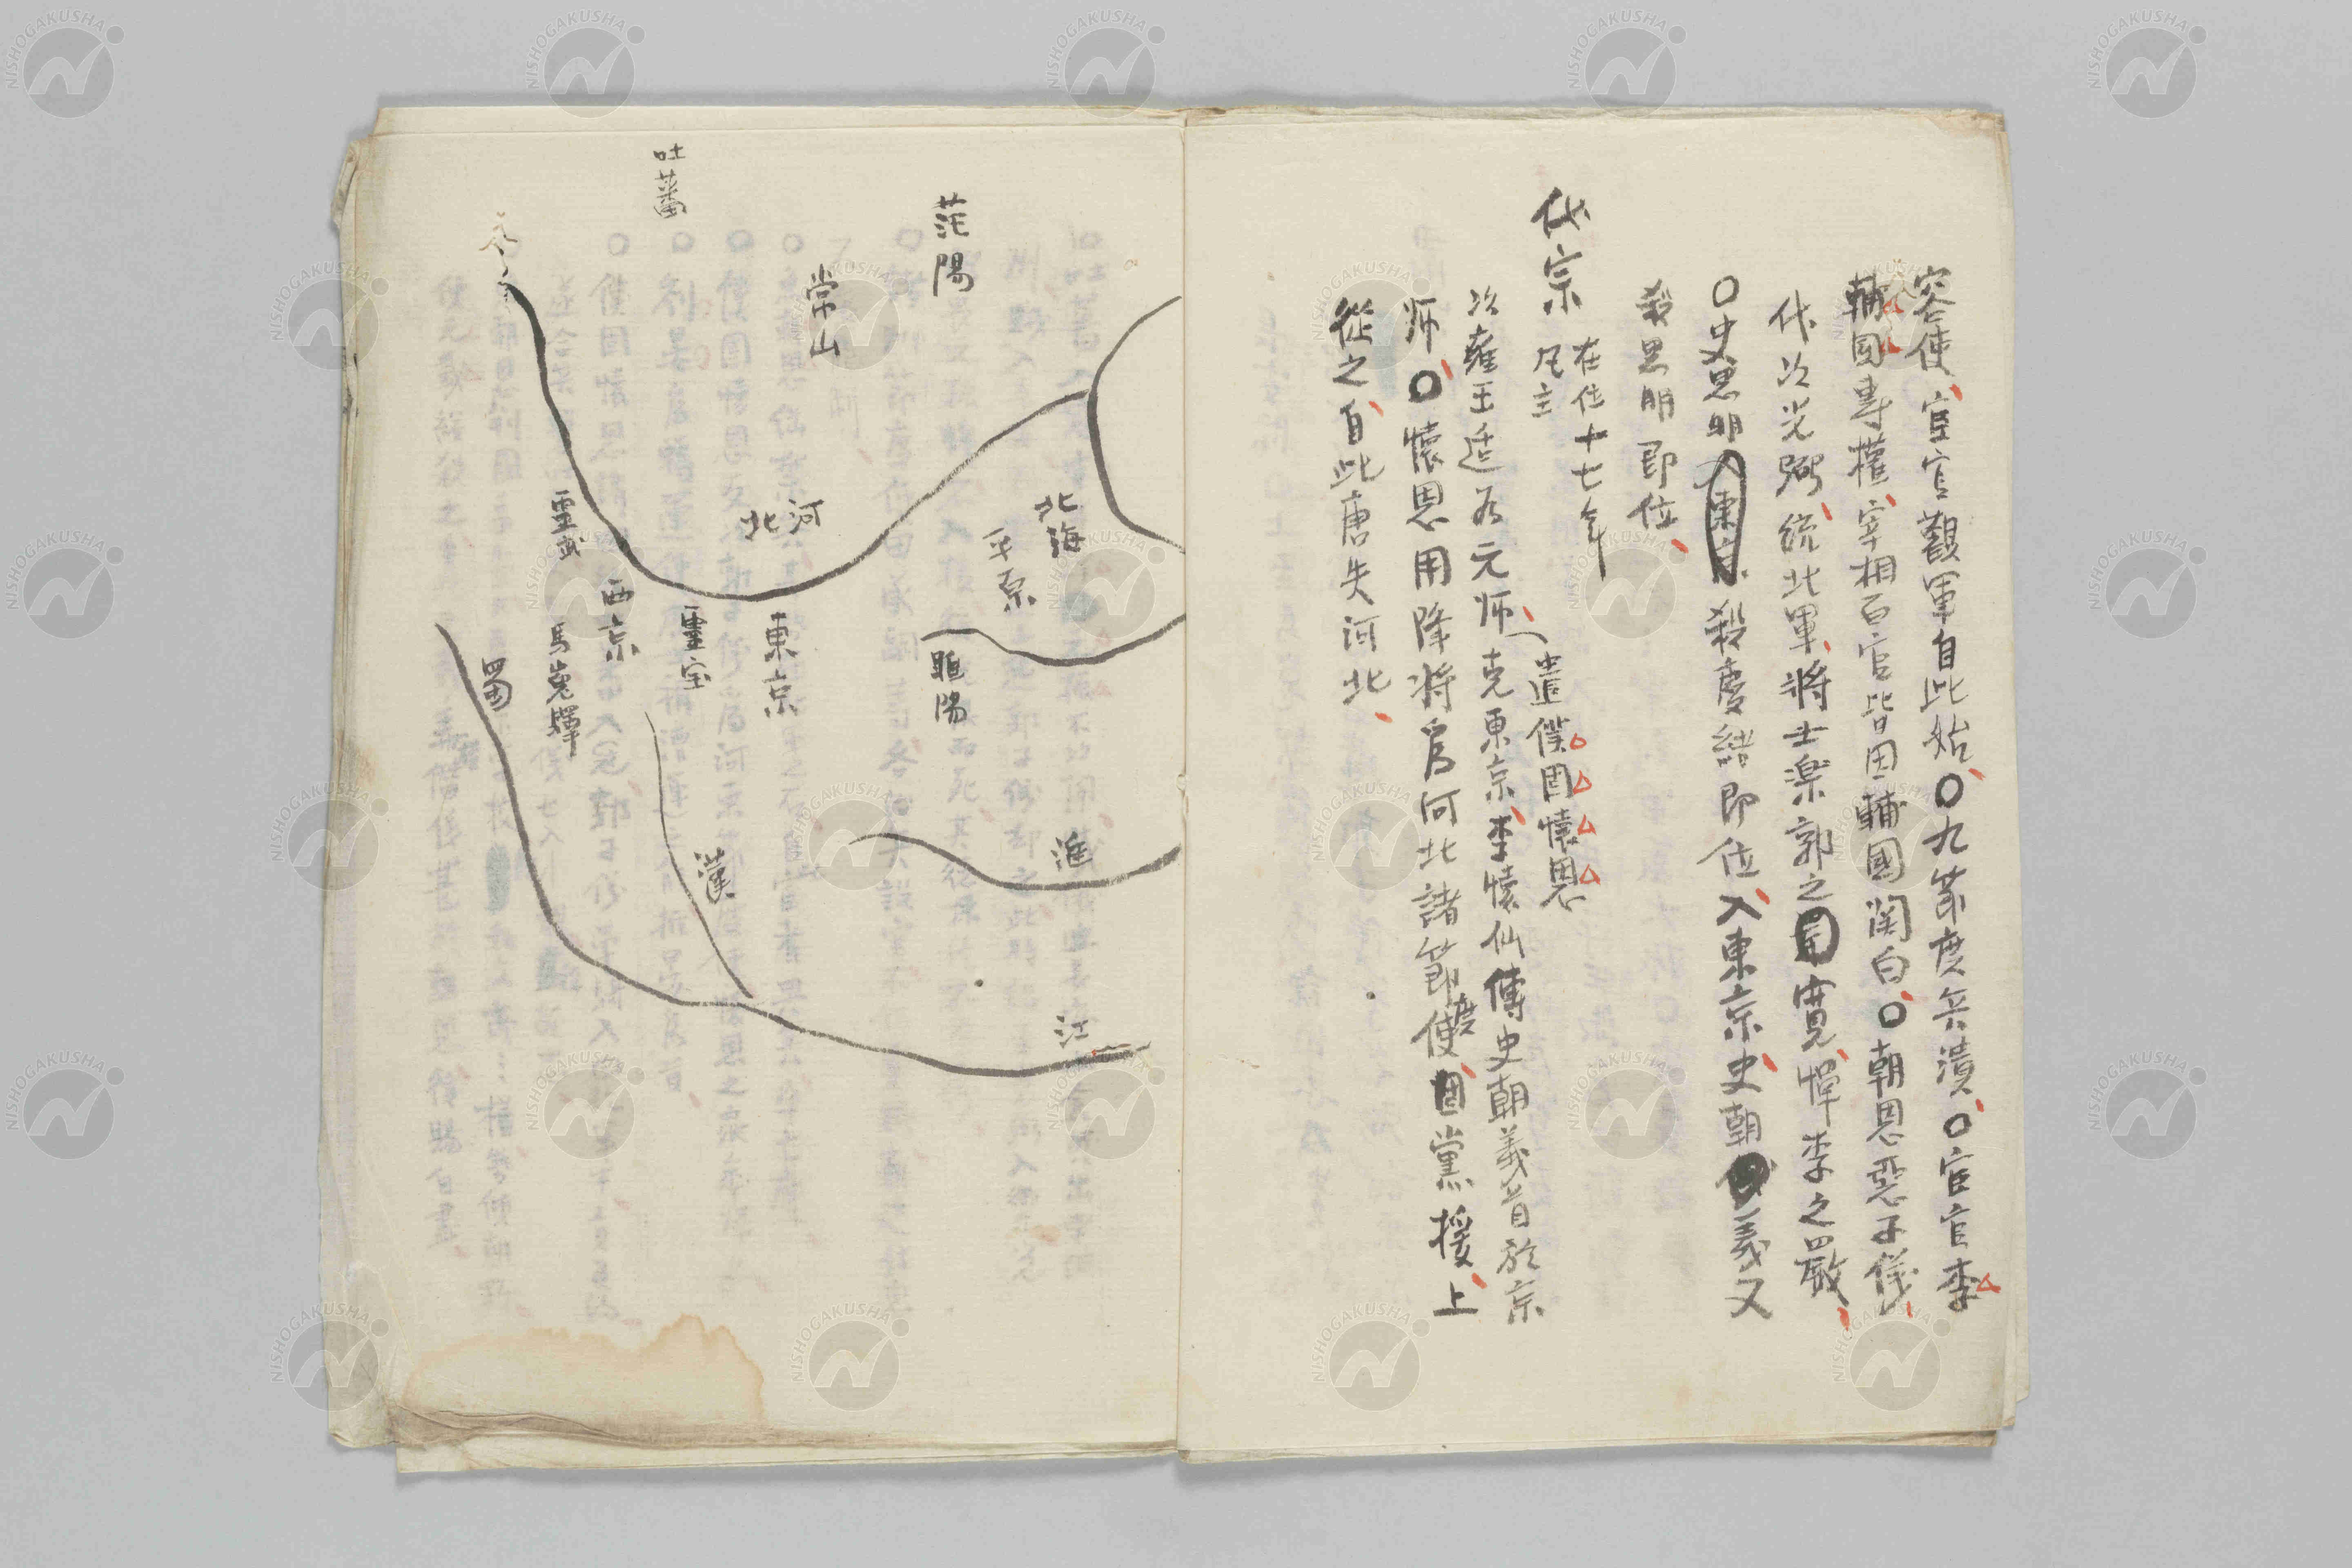 容使、宦官觀軍自此始、〇九節度兵潰、〇宦官李
輔国專権、宰相百官皆因輔國関白、〇朝恩惡子儀、
代以光弼、統北軍、将士楽郭之寛、憚李之嚴、
〇史思明殺慶緒即位、入東京、史朝義又
殺思明即位、
代宗 在位十七年
凡主
以雍王适為元师、遣僕固懷恩
克東京、李懐仙傳史朝義首於京
师、〇懐恩用降将為河北諸節度使、固黨援、上
從之、自此唐失河北、
茫陽
吐蕃
常山
北海
平原
河北
霊武
西京
霊宝
東京
睢陽
馬嵬驛
蜀
漢
淮
江
NISHOGAKUSHA